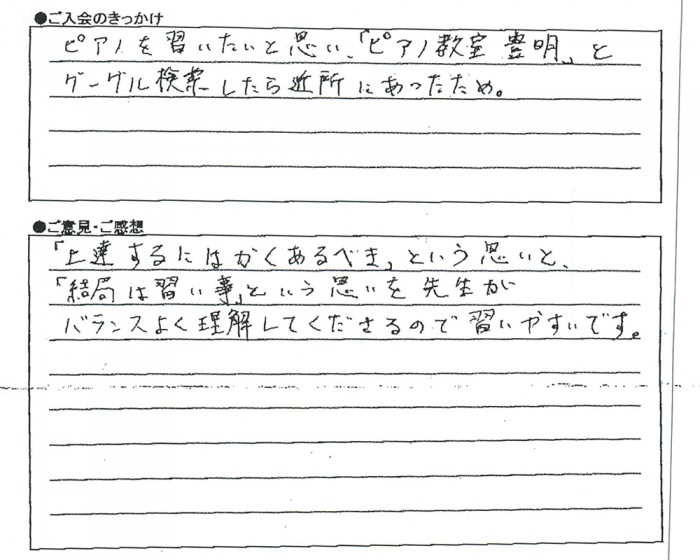 ●ご入会のきっかけ
ピアノを習いたいと思い、「ピアノ教室 豊明」と
グーグル検索したら近所にあったため。
●ご意見・ご感想
「上達するにはかくあるべき」という思いと、
「結局は習い事」という思いを先生が
バランスよく理解してくださるので習いやすいです。